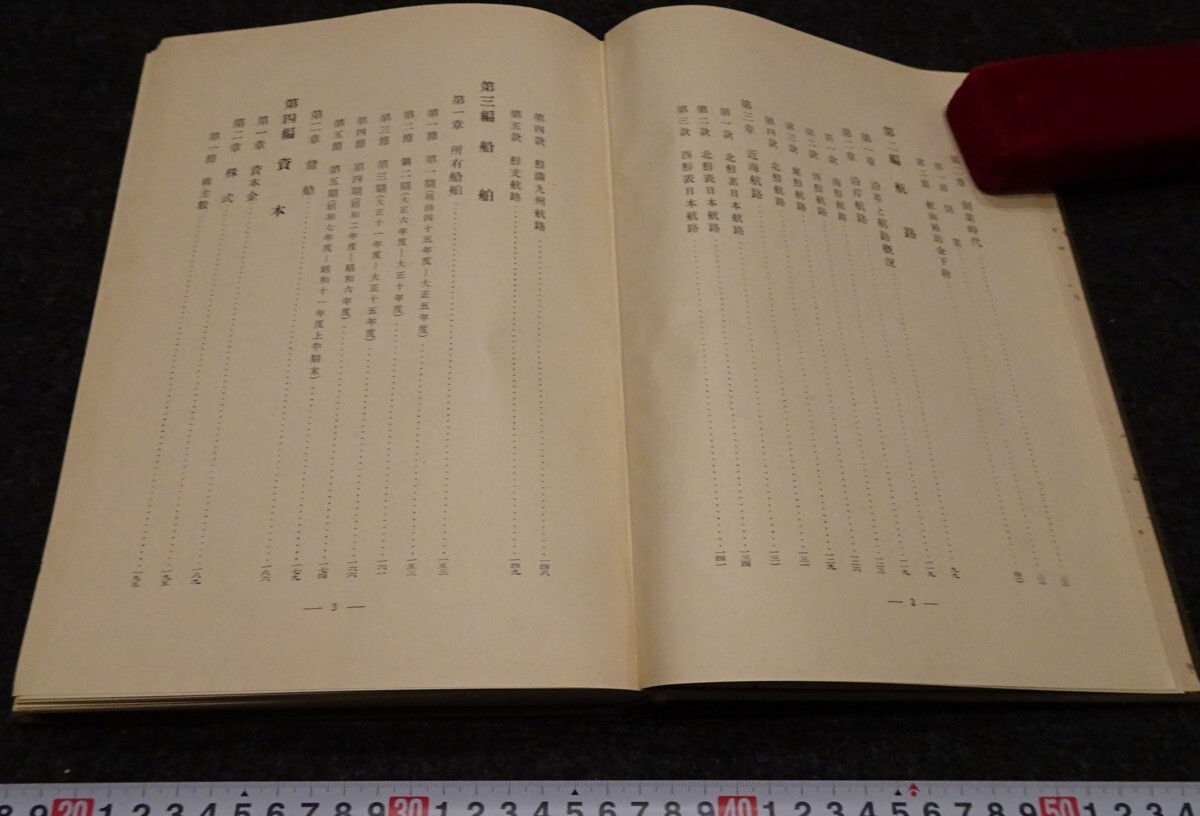 第二章 創業時代
第一節 創業
第二節 航海補助金下附
第二編 航路
第一章 沿革と航路概況 一一九
第二章 沿岸航路
第一款 南鮮航路
第二款 西鮮航路
第三款 東鮮航路
第四款 北鮮航路
第三章 近海航路
第一款 北鮮裏日本航路
第二款 北鮮表日本航路
第三款 西鮮表日本航路
— 2 —
第四款 鮮滿九州航路 一四八
第五款 鮮支航路 一四九
第三編 船舶
第一章 所有船舶 一五三
第一節 第一期(明治四十五年度—大正五年度) 一五三
第二節 第二期(大正六年度—大正十年度)
第三節 第三期(大正十一年度—大正十五年度) 一六一
第四節 第四期(昭和二年度—昭和六年度) 一六六
第五節 第五期(昭和七年度—昭和十一年度上半期末) 一七四
第二章 傭船 一七九
第四編 資本
第一章 資本金 一八六
第二章 株式
第一節 株主數
— 3 —
8 9 20 1 2 3 4 5 6 7 8 9 30 1 2 3 4 5 6 7 8 9 40 1 2 3 4 5 6 7 8 9 50 1 2 3 4